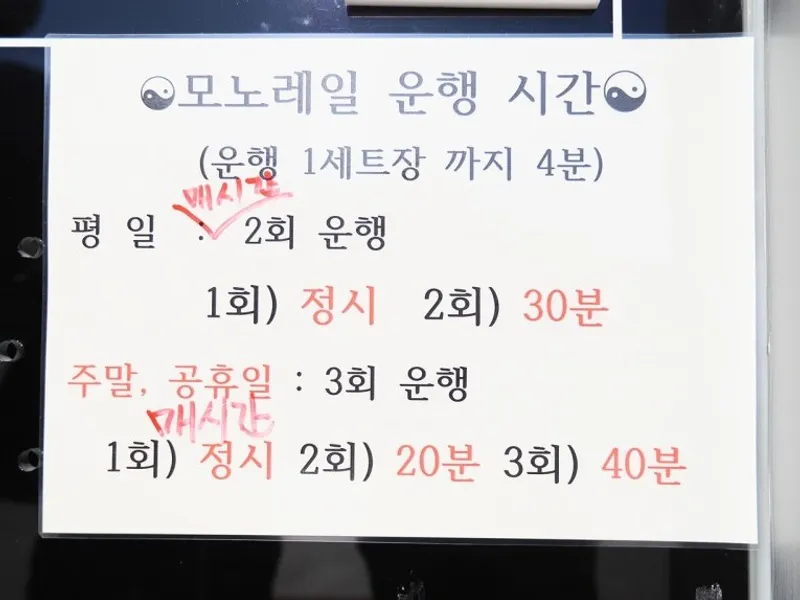 ☯모노레일 운행 시간☯
(운행 1세트장 까지 4분)
매시간
평 일 : 2회 운행
1회) 정시 2회) 30분
주말, 공휴일 : 3회 운행
매시간
1회) 정시 2회) 20분 3회) 40분